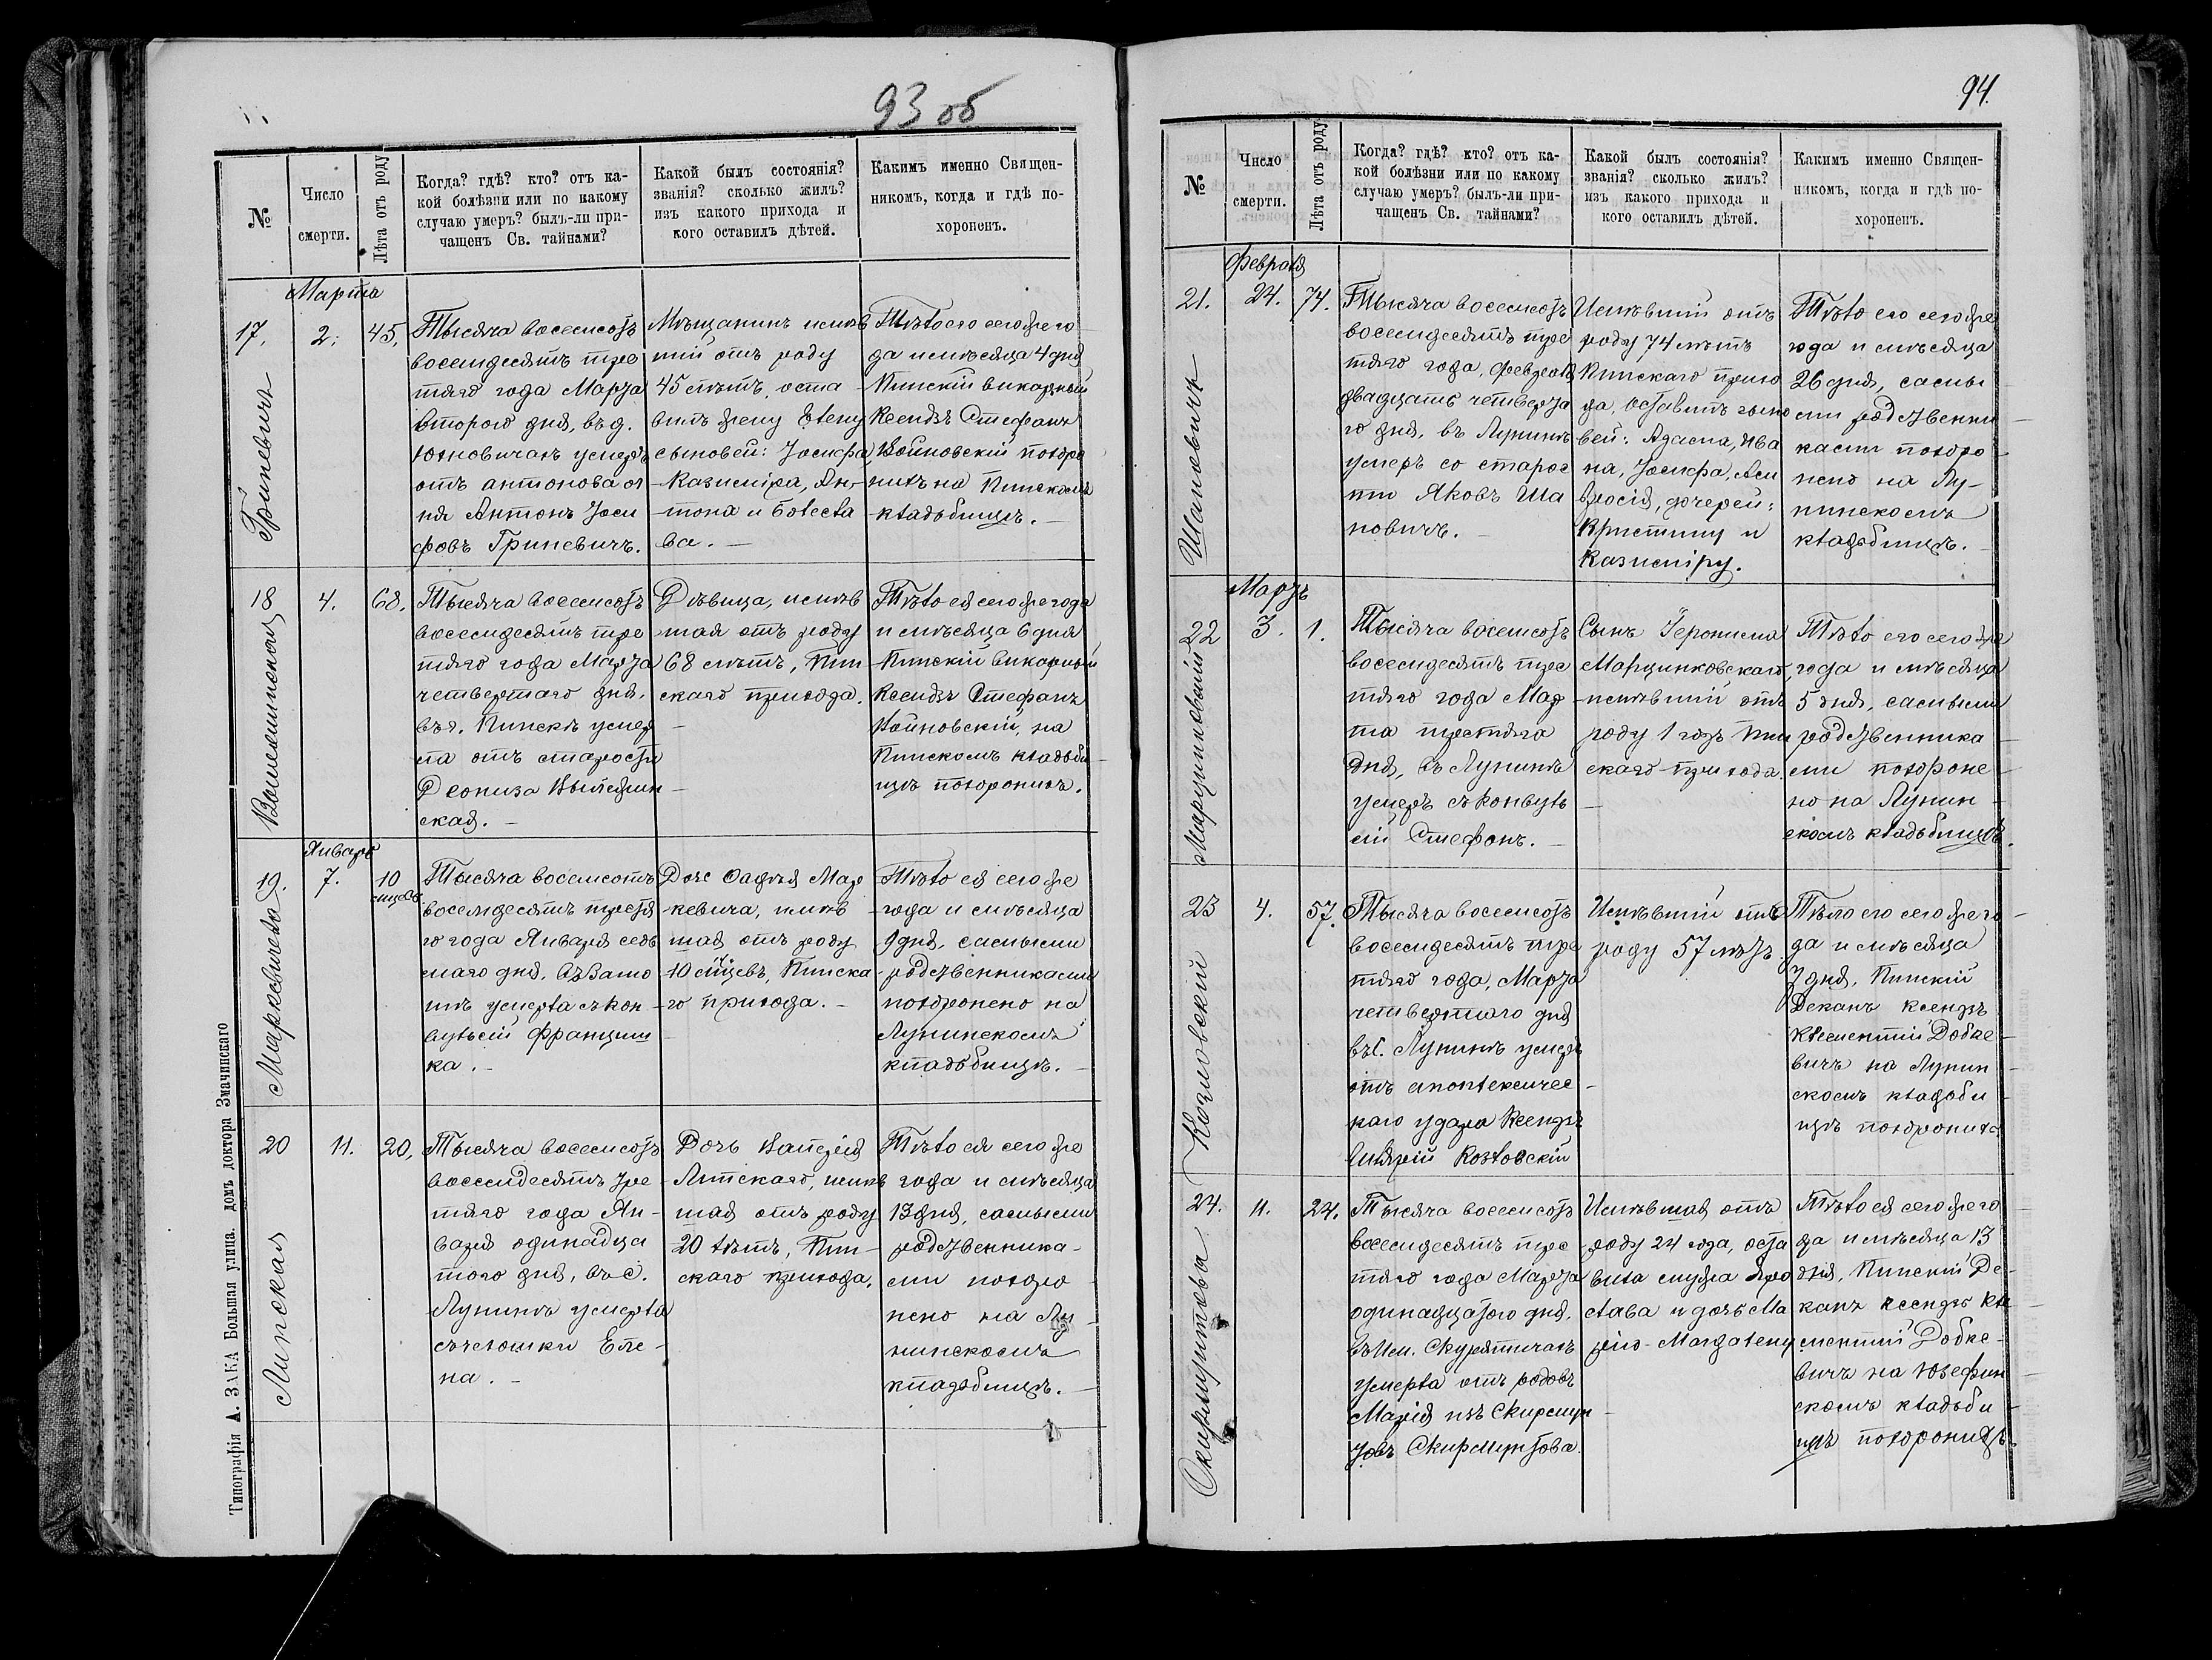 93 об
№
Число
смерти.
Лѣта отъ роду
Когда? гдѣ? кто? отъ ка-
кой болѣзни или по какому
случаю умеръ? былъ-ли при-
чащенъ Св. тайнами?
Какой былъ состоянія?
званія? сколько жилъ?
изъ какого прихода и
кого оставилъ дѣтей.
Какимъ именно Священ-
никомъ, когда и гдѣ по-
хороненъ.
Марта
17.
Гриневичъ
2.
45.
Тысяча восемсотъ
восемдесятъ тре
тяго года Марта
второго дня, въ д.
Юхновичахъ умеръ
отъ антонова ог
ня Антонъ Іоси
фовъ Гриневичъ.
Мѣщанинъ имѣв
шій отъ роду
45 лѣтъ, оста
вилъ жену Елену
сыновей: Іосифа,
Казиміра, Ан-
тона и Болесла
ва. —
Тѣло его сего же го
да и мѣсяца 4 дня
Пинскій викарный
Ксендзъ Стефанъ
Войновскій похоро
нилъ на Пинскомъ
кладбищѣ. —
18
4.
68.
Тысяча восемсотъ
восемдесятъ тре
тяго года Марта
четвертаго дня,
въ г. Пинскѣ умер
ла отъ старости
Деониза
ская. —
Дѣвица, имѣв
шая отъ роду
68 лѣтъ, Пин
скаго прихода.
Тѣло ея сего же года
и мѣсяца 6 дня
Пинскій викарный
Ксендзъ Стефанъ
Войновскій, на
Пинскомъ кладби
щѣ похоронилъ.
Январь
19.
Маркевичева
7.
10
мцевъ.
Тысяча восемсотъ
восемдесятъ третя
го года Января седь
маго дня,
умерла съ кон-
вульсій Францишк
ка. —
Дочь Мар
кевича, имѣв
шая отъ роду
10 мцевъ, Пинска
го прихода. —
Тѣло ея сего же
года и мѣсяца
9 дня, самыми
родственниками
похоронено на
Лунинскомъ
кладбищѣ. —
20
Липская
11.
20.
Тысяча восемсотъ
восемдесятъ тре
тяго года Ян-
варя одинадца
того дня, въ с.
Лунинѣ умерла
Еле-
на. —
Дочь Валерія
Липскаго, имѣв
шая отъ роду
20 лѣтъ, Пин-
скаго прихода.
Тѣло ея сего же
года и мѣсяца
13 дня, самыми
родственника-
ми похоро
нено на Лу
нинскомъ
кладбищѣ. —
Типографія А. ЗАКА Большая улица. домъ доктора Змачинскаго
94.
№
Число
смерти.
Лѣта отъ роду
Когда? гдѣ? кто? отъ ка-
кой болѣзни или по какому
случаю умеръ? былъ-ли при-
чащенъ Св. тайнами?
Какой былъ состоянія?
званія? сколько жилъ?
изъ какого прихода и
кого оставилъ дѣтей.
Какимъ именно Священ-
никомъ, когда и гдѣ по-
хороненъ.
Февраля
21.
Шаповичъ
24.
74.
Тысяча восемсотъ
восемдесятъ тре
тяго года, февраля
двадцать четверта
го дня, въ Лунинѣ
умеръ со старос
ти Яковъ Ша
повичъ. —
Имѣвшій отъ
роду 74 лѣтъ
Пинскаго прихо
да, оставилъ сыно
вей: Адама, Ива
на, Іосифа, Ам
вросія, дочерей:
Кристину и
Казиміру.
Тѣло его сего же
года и мѣсяца
26 дня, самы
ми родственни
ками похоро
нено на Лу-
нинскомъ
кладбищѣ. —
Мартъ
22
Марцинковскій
3.
1.
Тысяча восемсотъ
восемдесятъ тре
тяго года Мар
та третяго
дня, въ Лунинѣ
умеръ съ конвуль
сій Стефанъ. —
Сынъ Іеронима
Марцинковскаго,
имѣвшій отъ
роду 1 годъ Пин
скаго прихода.
Тѣло его сего же
года и мѣсяца
5 дня, самыми
родственника
ми похороне
но на Лунин
скомъ кладбищѣ.
23
Козловскій
4.
57.
Тысяча восемсотъ
восемдесятъ тре
тяго года, Марта
четвертаго дня
въ с. Лунинѣ умеръ
отъ апоплексичес
каго удара Ксендзъ
Козловскій
Имѣвшій отъ
роду 57 лѣтъ
Тѣло его сего же го
да и мѣсяца
7 дня, Пинскій
Деканъ ксендзъ
Клементій Добке
вичъ на Лунин
скомъ кладби
щѣ похоронилъ
24.
Скирмунтова
11.
24.
Тысяча восемсотъ
восемдесятъ тре
тяго года Марта
одинадцатого дня,
въ им. Скурятичахъ
умерла отъ родовъ
Марія изъ Скирмун
товъ Скирмунтова.
Имѣвшая отъ
роду 24 года, оста
вила мужа Яро
слава и дочь Ма
рію-Магдалену
Тѣло ея сего же го
да и мѣсяца 13
дня, Пинскій Де-
канъ ксендзъ Кле
ментій Добке-
вичъ на Юзефин
скомъ кладби
щѣ похоронилъ.